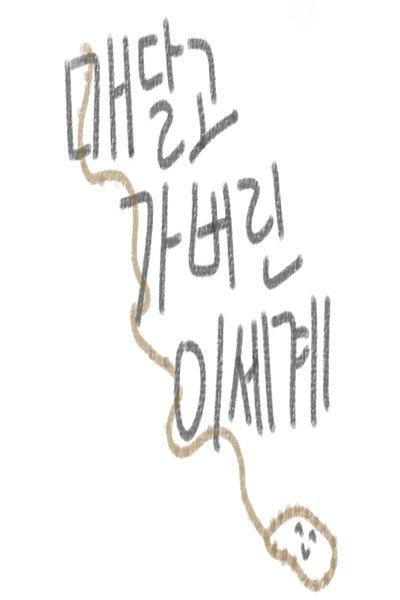 매달고
가버린
이세계